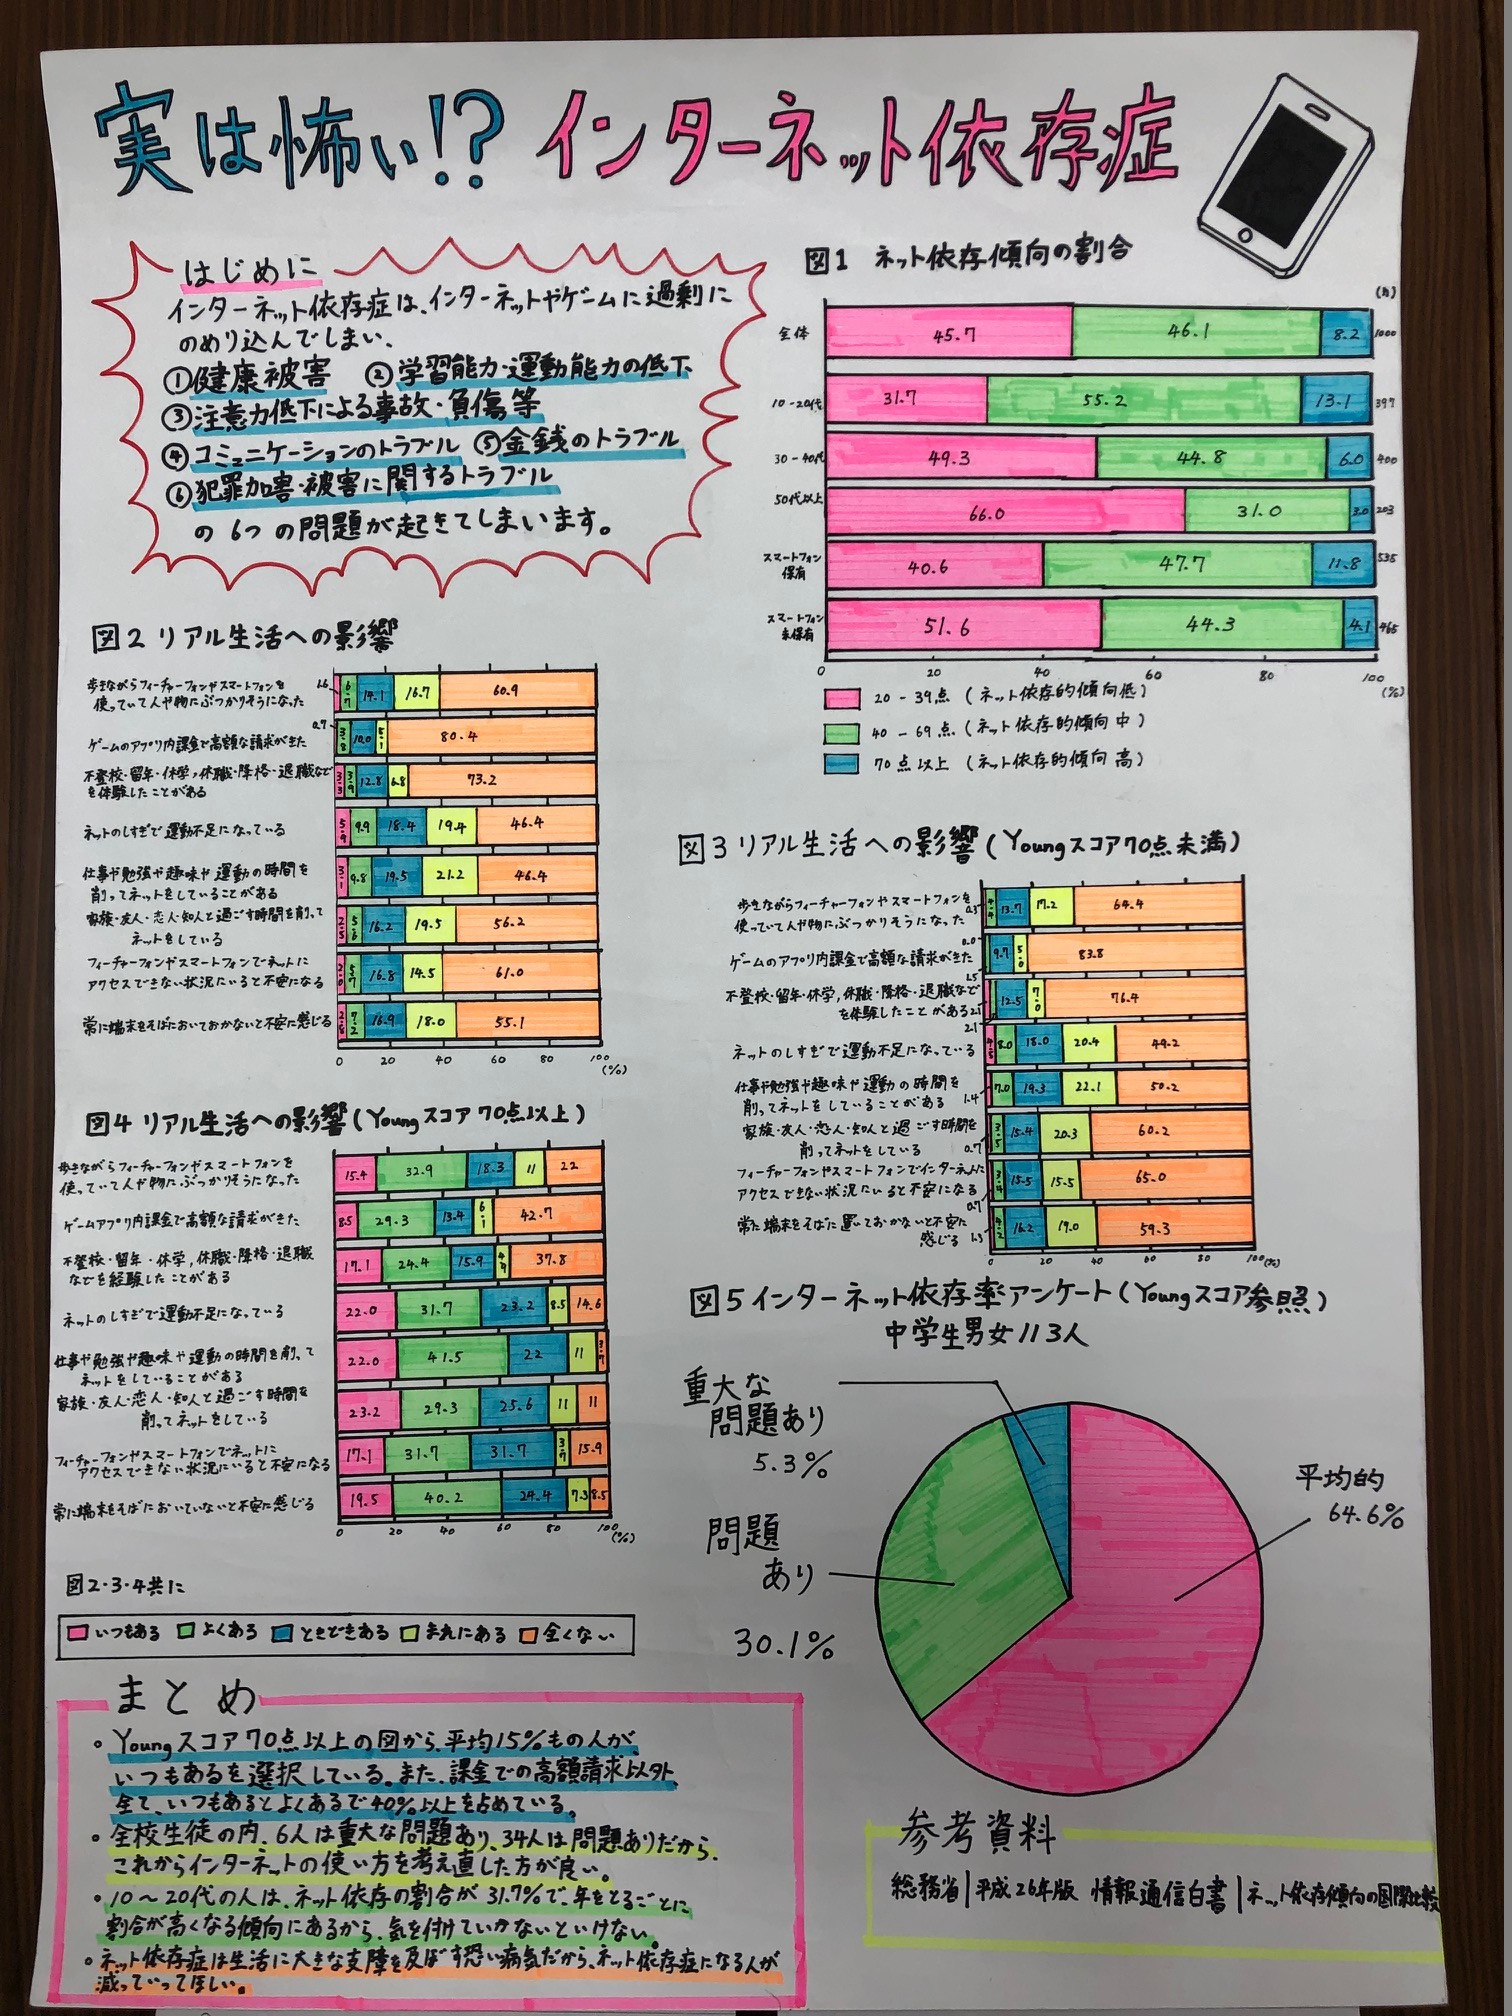 実は怖い!? インターネット依存症
はじめに
インターネット依存症は、インターネットやゲームに過剰に
のめり込んでしまい、
①健康被害 ②学習能力・運動能力の低下、
③注意力低下による事故・負傷等
④コミュニケーションのトラブル ⑤金銭のトラブル
⑥犯罪加害・被害に関するトラブル
の6つの問題が起きてしまいます。
図1 ネット依存傾向の割合
(n)
全体 45.7 46.1 8.2 1000
10-20代 31.7 55.2 13.1 397
30-40代 49.3 44.8 6.0 400
50代以上 66.0 31.0 3.0 203
スマートフォン
保有 40.6 47.7 11.8 535
スマートフォン
未保有 51.6 44.3 4.1 465
0 20 40 60 80 100
(%)
20-39点 (ネット依存的傾向低)
40-69点 (ネット依存的傾向中)
70点以上 (ネット依存的傾向高)
図2 リアル生活への影響
歩きながらフィーチャーフォンやスマートフォンを
使っていて人や物にぶつかりそうになった
1.6 6.7 14.1 16.7 60.9
ゲームのアプリ内課金で高額な請求がきた
0.7 3.8 10.0 5.1 80.4
不登校・留年・休学,休職・降格・退職など
を体験したことがある
3.3 3.9 12.8 6.8 73.2
ネットのしすぎで運動不足になっている
5.9 9.9 18.4 19.4 46.4
仕事や勉強や趣味や運動の時間を
削ってネットをしていることがある
3.1 9.8 19.5 21.2 46.4
家族・友人・恋人・知人と過ごす時間を削って
ネットをしている
2.5 5.6 16.2 19.5 56.2
フィーチャーフォンやスマートフォンでネットに
アクセスできない状況にいると不安になる
2.0 5.7 16.8 14.5 61.0
常に端末をそばにおいておかないと不安に感じる
2.8 7.2 16.9 18.0 55.1
0 20 40 60 80 100
(%)
図3 リアル生活への影響(Youngスコア70点未満)
歩きながらフィーチャーフォンやスマートフォンを
使っていて人や物にぶつかりそうになった
0.3 4.4 13.7 17.2 64.4
ゲームのアプリ内課金で高額な請求がきた
0.0 1.5 9.7 5.0 83.8
不登校・留年・休学,休職・降格・退職などで
を体験したことがある
2.1 2.1 12.5 7.0 76.4
ネットのしすぎで運動不足になっている
4.5 8.0 18.0 20.4 49.2
仕事や勉強や趣味や運動の時間を
削ってネットをしていることがある
1.4 7.0 19.3 22.1 50.2
家族・友人・恋人・知人と過ごす時間を
削ってネットをしている
0.7 3.5 15.4 20.3 60.2
フィーチャーフォンやスマートフォンでインターネットに
アクセスできない状況にいると不安になる
0.7 3.4 15.5 15.5 65.0
常に端末をそばに置いておかないと不安に
感じる
1.3 4.2 16.2 19.0 59.3
0 20 40 60 80 100(%)
図4 リアル生活への影響(Youngスコア70点以上)
歩きながらフィーチャーフォンやスマートフォンを
使っていて人や物にぶつかりそうになった
15.4 32.9 18.3 11 22
ゲームアプリ内課金で高額な請求がきた
8.5 29.3 13.4 6.1 42.7
不登校・留年・休学,休職・降格・退職
などを経験したことがある
17.1 24.4 15.9 4.9 37.8
ネットのしすぎで運動不足になっている
22.0 31.7 23.2 8.5 14.6
仕事や勉強や趣味や運動の時間を削って
ネットをしていることがある
22.0 41.5 22 11 3.7
家族・友人・恋人・知人と過ごす時間を
削ってネットをしている
23.2 29.3 25.6 11 11
フィーチャーフォンやスマートフォンでネットに
アクセスできない状況にいると不安になる
17.1 31.7 31.7 3.7 15.9
常に端末をそばにおいていないと不安に感じる
19.5 40.2 24.4 7.3 8.5
0 20 40 60 80 100
(%)
図2・3・4共に
いつもある よくある ときどきある まれにある 全くない
図5 インターネット依存率アンケート(Youngスコア参照)
中学生男女113人
重大な
問題あり
5.3%
問題
あり
30.1%
平均的
64.6%
まとめ
・Youngスコア70点以上の図から、平均15%もの人が、
いつもあるを選択している。また、課金での高額請求以外、
全て、いつもあるとよくあるで40%以上を占めている。
・全校生徒の内、6人は重大な問題あり、34人は問題ありだから、
これからインターネットの使い方を考え直した方が良い。
・10〜20代の人は、ネット依存の割合が31.7%で、年をとるごとに
割合が高くなる傾向にあるから、気を付けていかないといけない。
・ネット依存症は生活に大きな支障を及ぼす恐い病気だから、ネット依存症になる人が
減っていってほしい。
参考資料
総務省|平成26年版 情報通信白書|ネット依存傾向の国際比較